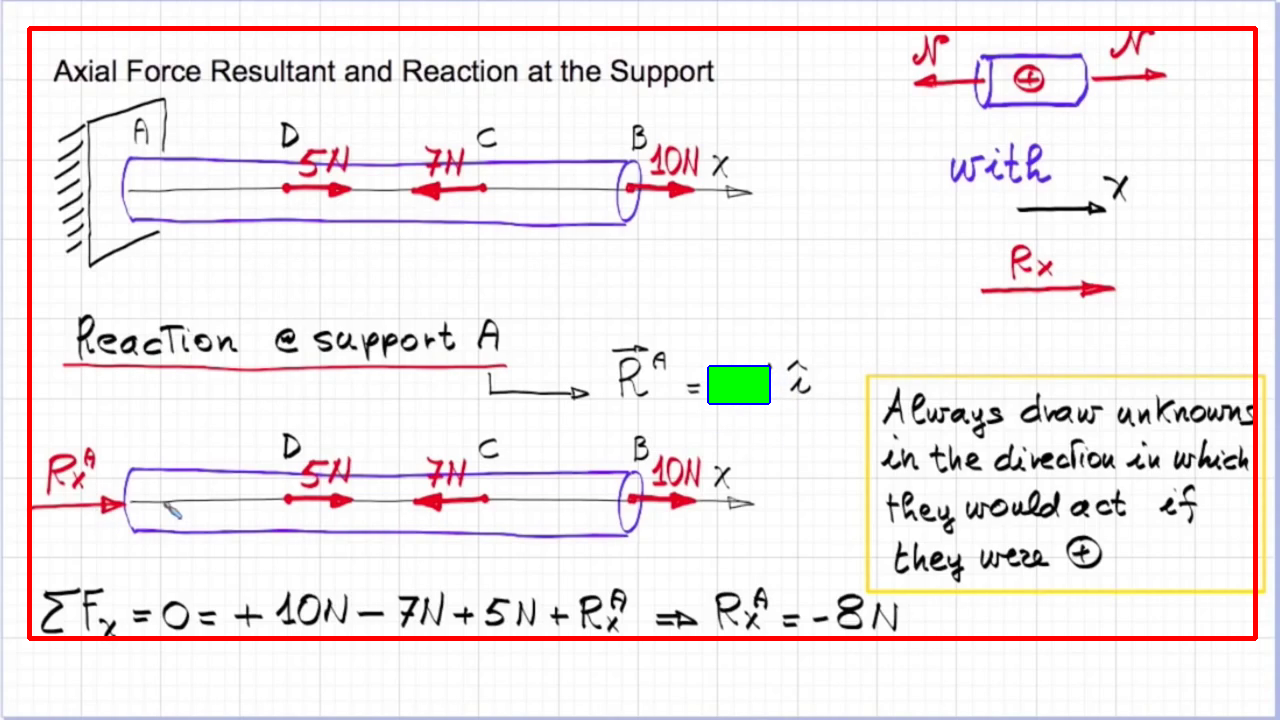 Axial Force Resultant and Reaction at the Support
N N
A D 5N 7N C B 10N x
with
x
Rx
Reaction @ support A
R^A = î
Always draw unknowns
in the direction in which
they would act if
they were ⊕
Rx^A D 5N 7N C B 10N x
ΣFx = 0 = + 10N - 7N + 5N + Rx^A ⇒ Rx^A = -8N